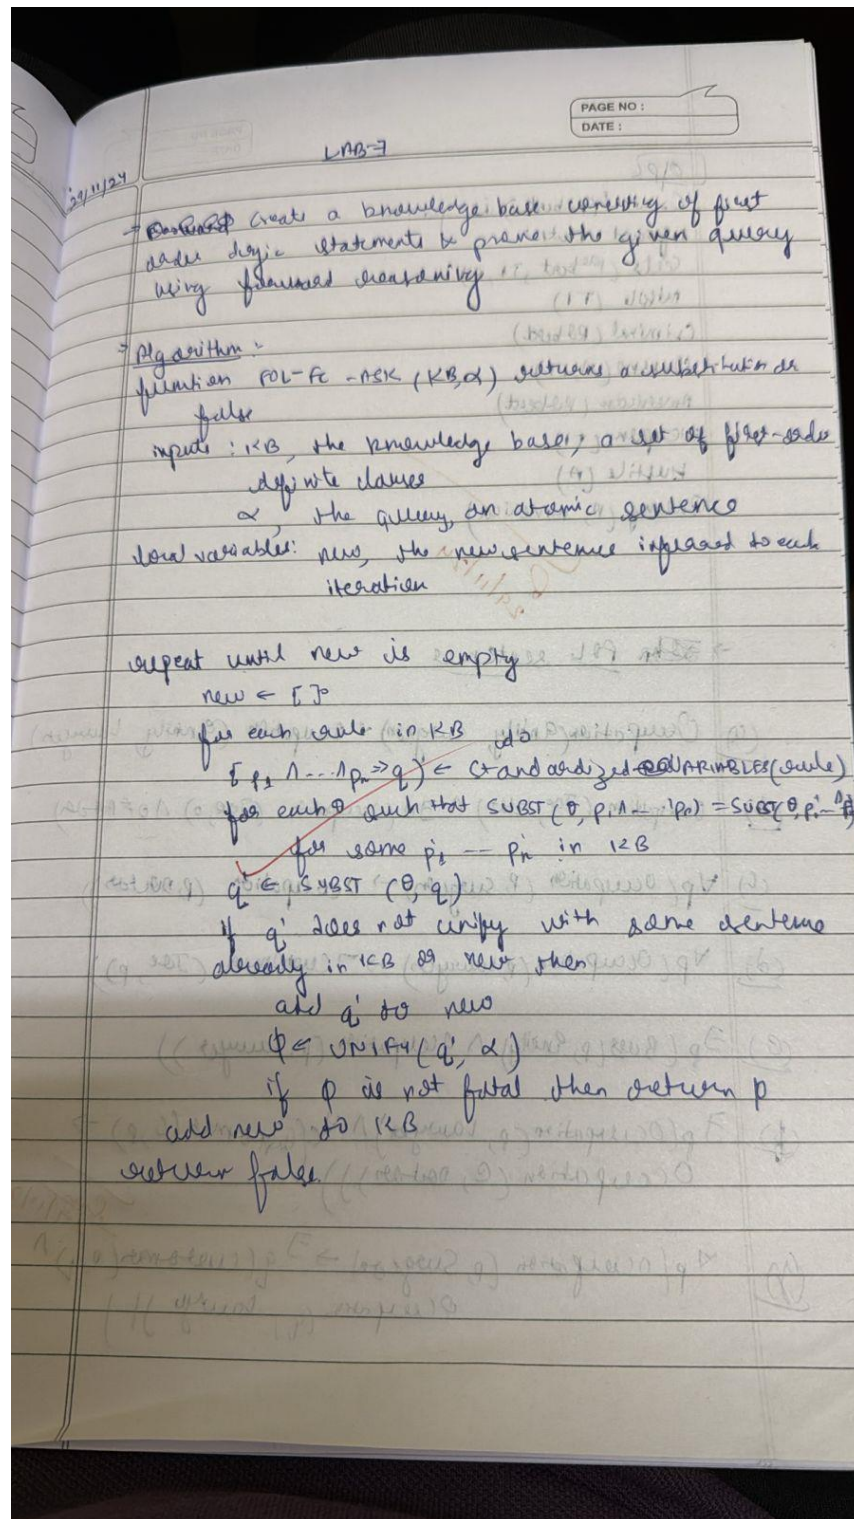 PAGE NO :
DATE :
LAB-7
29/11/24
→ Create a knowledge base consisting of first
order logic statements & prove the given query
using forward reasoning
→ Algorithm :-
function FOL-FC-ASK (KB, α) returns a substitution or
false
inputs : KB, the knowledge base, a set of first-order
definite clauses
α, the query, an atomic sentence
local variables: new, the new sentence inferred to each
iteration
repeat until new is empty
new ← [ ]
for each rule in KB do
[p1 ∧ ... ∧ pn ⇒ q) ← Standardized VARIABLES(rule)
for each θ such that SUBST (θ, p1 ∧ ... pn) = SUBST(θ, p'1 ...
for some p'1 -- p'n in KB
q' ← SUBST (θ, q)
if q' does not unify with some sentence
already in KB or new then
add q' to new
Φ ← UNIFY (q', α)
if Φ is not fatal then return p
add new to KB
return false.